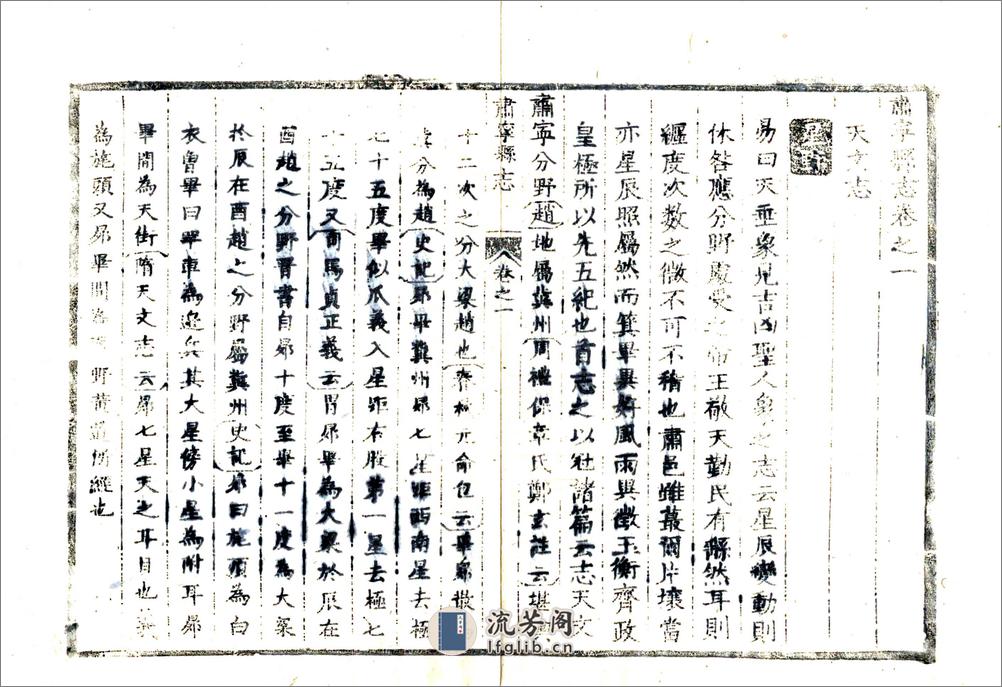 肅寧縣志卷之一
天文志
易曰天垂象見吉凶聖人象之志云星辰變動則
休咎應分野處受之帝王敬天勤民有縣然耳則
纏度次數之微不可不稽也肅邑雖蕞爾片壤當
亦星辰照屬然而箕畢異好風雨與徵玉衡齊政
皇極所以先五紀也首志之以冠諸篇云志天文
肅寧分野趙地屬冀州周禮保章氏鄭玄註云堪
肅寧縣志
卷之一
十二次之分大梁趙也春秋元命包云畢昴散
分為趙史記昴畢冀州昴七星距西南星去極
七十五度畢似爪義入星距右股第一星去極七
十五度又司馬貞正義云胃昴畢為大梁於辰在
酉趙之分野晋書自昴十度至畢十一度為大梁
於辰在酉趙之分野屬冀州史記昴曰旄頭為白
衣會畢曰罕車為邊兵其大星傍小星為附耳昴
畢間為天街隋天文志云昴七星天之耳目也
為旄頭又昴畢間為 野黃道所經也
流芳阁
lfglib.cn